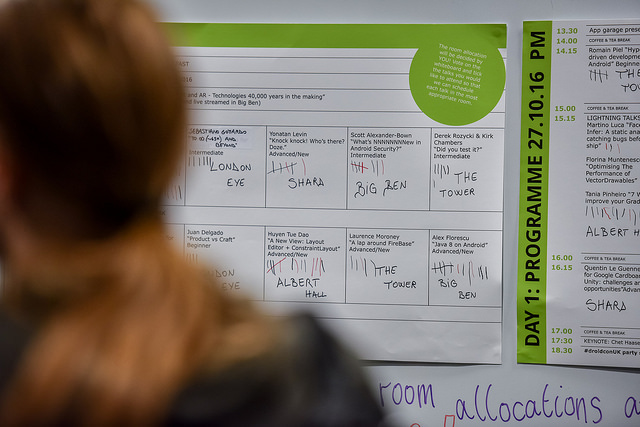 The room allocation
will be decided by
YOU! Vote on the
whiteboard and tick
the talks you would
like to attend so that
we can schedule
each talk in the most
appropriate room.
and AR - Technologies 40,000 years in the making"
live streamed in Big Ben)
Intermediate
LONDON
EYE
Yonatan Levin
"Knock knock! Who's there?
Doze."
Advanced/New
SHARD
Scott Alexander-Bown
"What's NNNNNNNNew in
Android Security?"
Intermediate
BIG BEN
Derek Rozycki & Kirk
Chambers
"Did you test it?"
Intermediate
THE
TOWER
Juan Delgado
"Product vs Craft"
Beginner
EYE
Huyen Tue Dao
"A New View: Layout
Editor + ConstraintLayout"
Advanced/New
ALBERT
HALL
Laurence Moroney
"A lap around FireBase"
Advanced/New
THE
TOWER
Alex Florescu
"Java 8 on Android"
Advanced/New
BIG
BEN
DAY 1: PROGRAMME 27.10.16 PM
13.30 App garage
14.00 COFFEE & TEA BREAK
14.15 Romain Piel
driven
Android"
15.00 COFFEE & TEA BREAK
15.15 LIGHTNING TALKS
Martino Luca
Infer: A static
catching bugs
ship"
Florina Muntenescu
"Optimising The
Performance of
VectorDrawables"
Tania Pinheiro
improve your
ALBERT
16.00 COFFEE & TEA BREAK
16.15 Quentin Le
for Google
Unity: challenges
opportunities"
SHARD
17.00 COFFEE & TEA BREAK
17:30 KEYNOTE: Chet Haase
18.30 #droidconUK party
room allocations